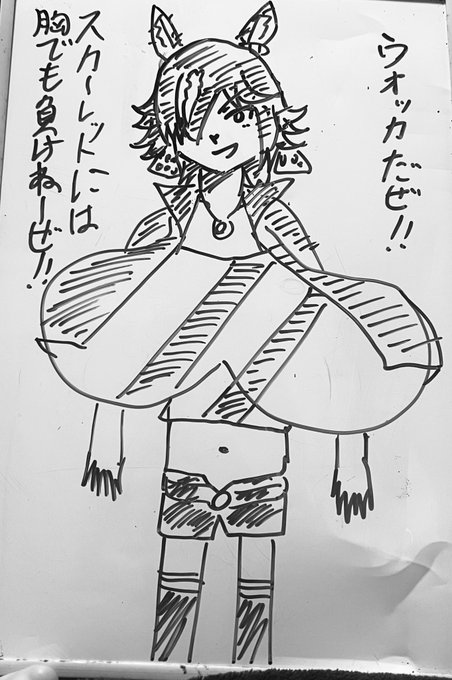 ウオッカだぜ!!
スカーレットには
胸でも負けねーぜ!!